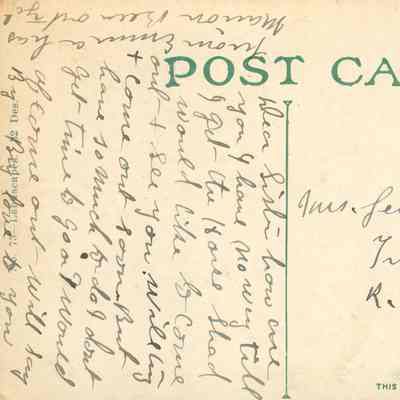 POST CA
Dear Sister how are
you I have no way till
I get the Horse Shed
would like to come
out & see you. Willing
& come out soon. But
have so much to do I dont
get time to go. I would
of come out - will say
By By to you
from Emma & has
Marion Been out
Mrs. Ge
R.
THIS